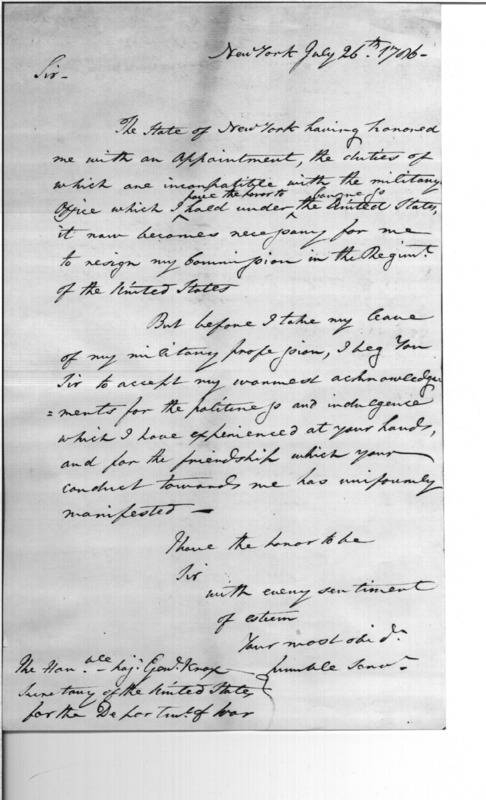 New York July 26th. 1786-
Sir-
The State of New York having honored
me with an Appointment, the duties of
which are incompatible with the military
have the honor to
Office which I hold under the United States,
it now becomes necessary for me
to resign my Commission in the Regimt.
of the United States
But before I take my leave
of my military profession, I beg You
Sir to accept my warmest acknowledge
=ments for the politeness and indulgence
which I have experienced at your hands,
and for the friendship which your
conduct towards me has uniformly
manifested —
I have the honor to be
Sir
with every sentiment
of esteem
Your most obedt.
humble Servt.
The Honble Maj: Genl. Knox
Secretary of the United States
for the Departmt. of War